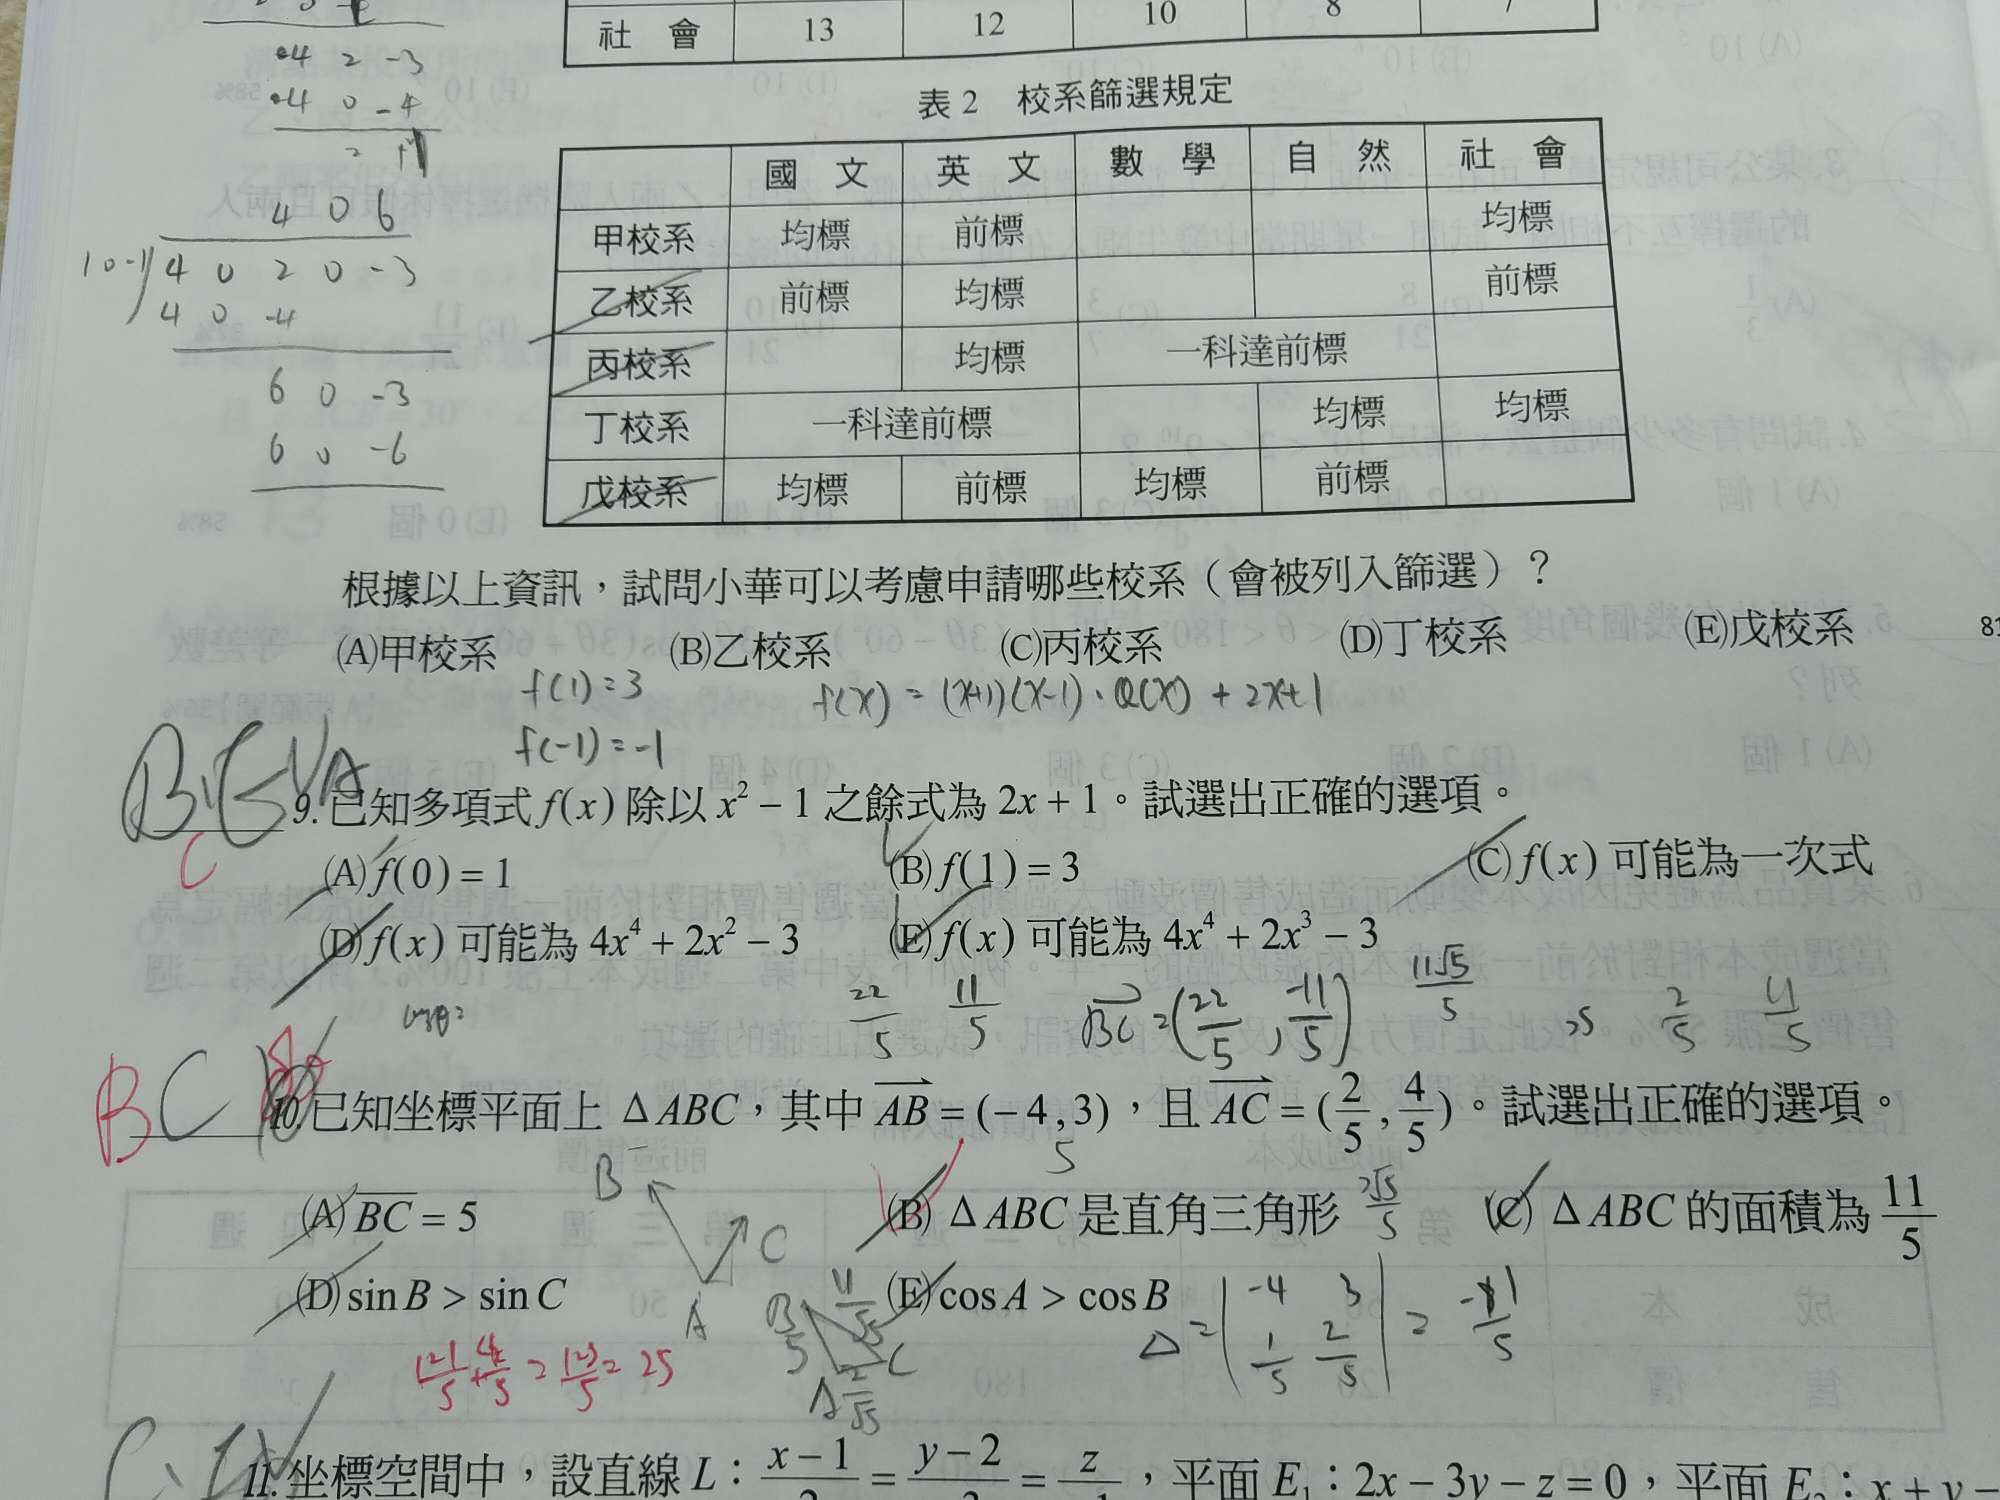 社 會 13 12 10 8 7
表 2 校系篩選規定
國 文 英 文 數 學 自 然 社 會
甲校系 均標 前標 均標
乙校系 前標 均標 前標
丙校系 均標 一科達前標
丁校系 一科達前標 均標 均標
戊校系 均標 前標 均標 前標
4 2 -3
4 0 -4
2 +1
4 0 6
10-1 4 0 2 0 -3
4 0 -4
6 0 -3
6 0 -6
根據以上資訊，試問小華可以考慮申請哪些校系（會被列入篩選）？
(A)甲校系 (B)乙校系 (C)丙校系 (D)丁校系 (E)戊校系 81
f(1)=3 f(x)=(x+1)(x-1)·Q(x)+2x+1
f(-1)=-1
9. 已知多項式 f(x) 除以 x² − 1 之餘式為 2x + 1。試選出正確的選項。
C
(A) f(0) = 1 (B) f(1) = 3 (C) f(x) 可能為一次式
(D) f(x) 可能為 4x⁴ + 2x² − 3 (E) f(x) 可能為 4x⁴ + 2x³ − 3
22/5 11/5 BC=(22/5, -11/5) 11√5/5 25 2/5 11/5
BC
10. 已知坐標平面上 ΔABC，其中 AB = (−4, 3)，且 AC = (2/5, 4/5)。試選出正確的選項。
5
(A) BC = 5 (B) ΔABC 是直角三角形 2√5/5 (C) ΔABC 的面積為 11/5
B C A
(D) sin B > sin C (E) cos A > cos B
B 5 11/√5 C A 2/√5
Δ = | -4 3 | = -11/5
1/5 2/5
121/5+4/5=125/5=25
11. 坐標空間中，設直線 L：x−1/2 = y−2/ = z/ ，平面 E₁：2x−3y−z=0，平面 E₂：x+y−